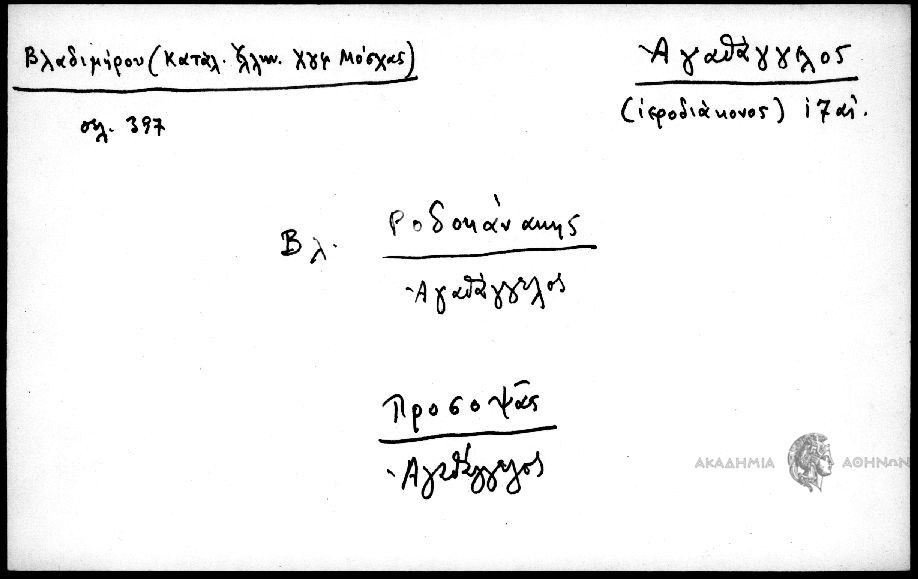 Βλαδιμήρου (Κατάλ. Ἑλλην. χγφ Μόσχας)
σελ. 397
Ἀγαθάγγελος
(ἱεροδιάκονος) 17 αἰ.
Βλ. Ροδοκάνακης
Ἀγαθάγγελος
Προσοψᾶς
Ἀγαθάγγελος
ΑΚΑΔΗΜΙΑ ΑΘΗΝΩΝ